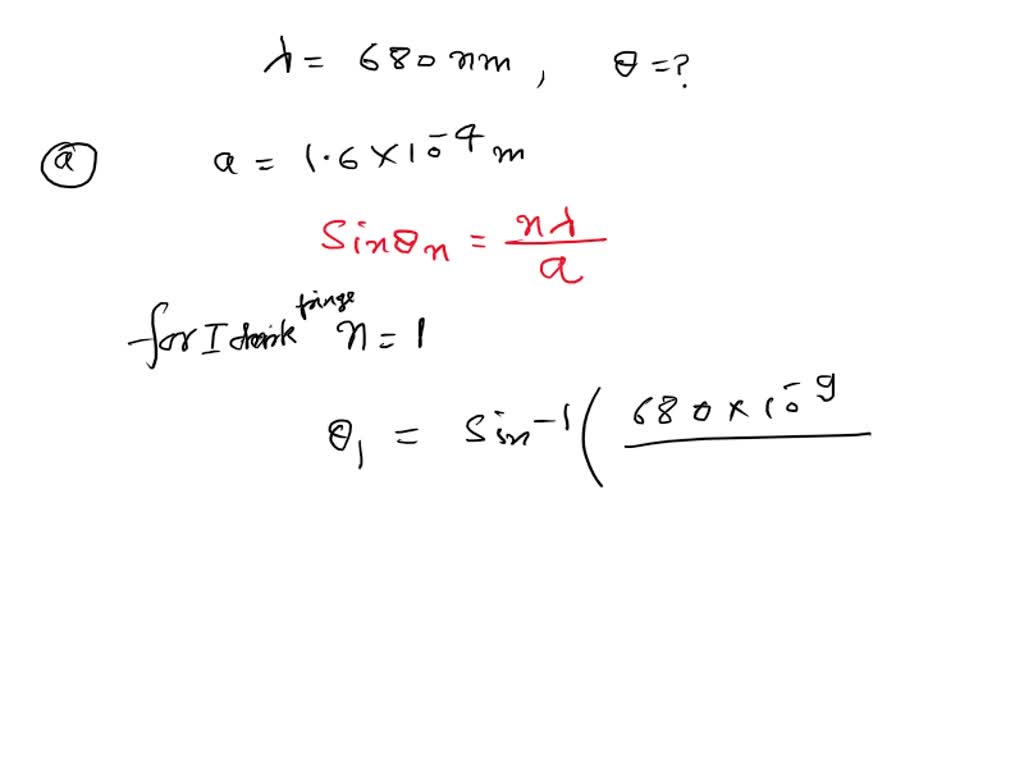 λ = 680 nm, θ = ?
(a) a = 1.6 × 10⁻⁴ m
Sinθₙ = nλ / a
fringe
for I dark n = 1
θ₁ = Sin⁻¹( 680 × 10⁻⁹